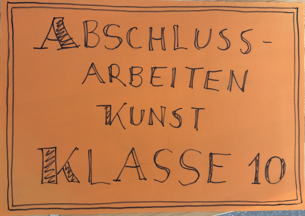 ABSCHLUSS-
ARBEITEN
KUNST
KLASSE 10